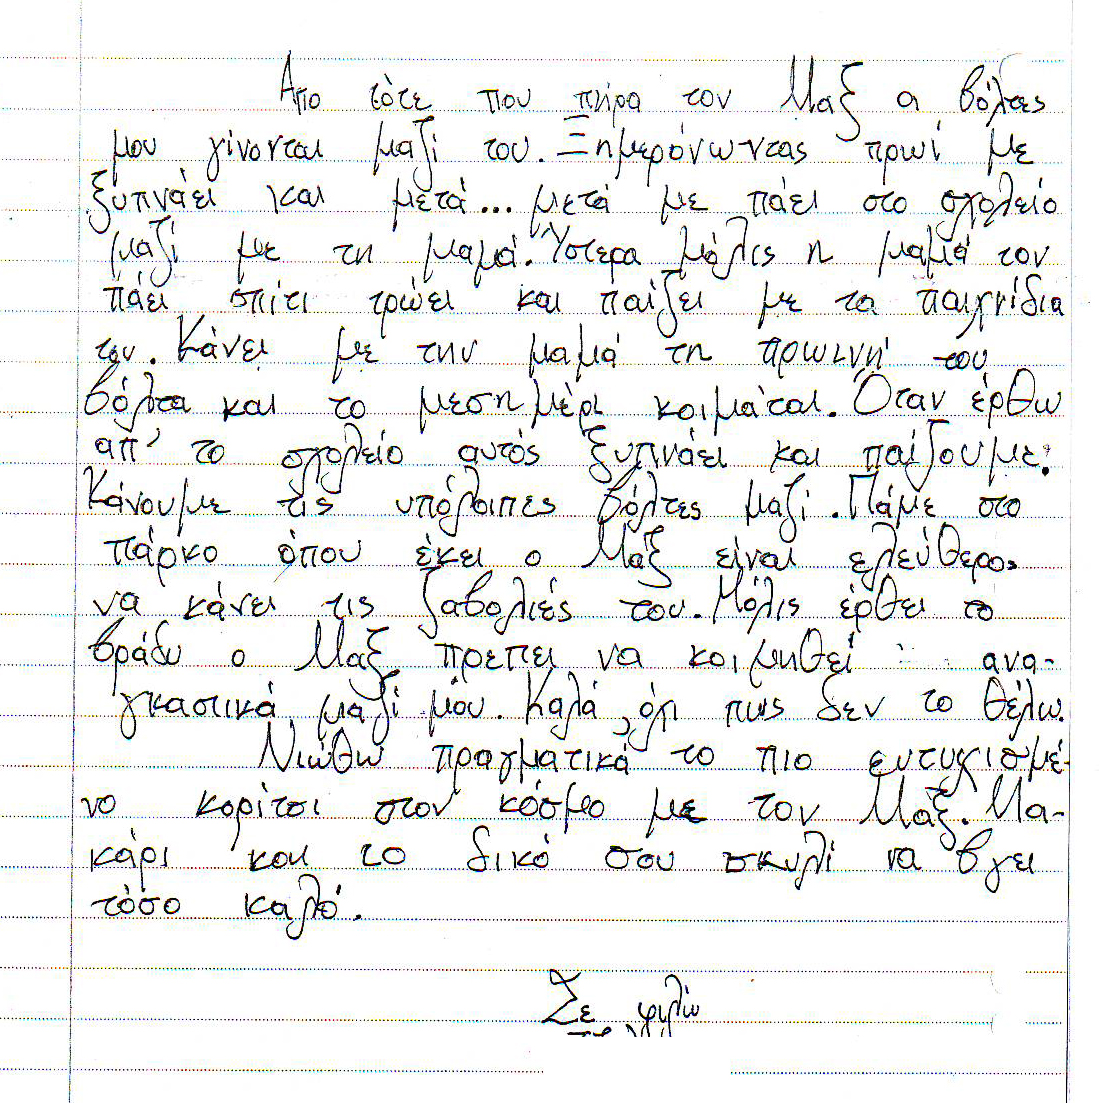 Απο τότε που πήρα τον Μαξ α βόλτες
μου γίνονται μαζί του. Ξημερόνωντας πρωί με
ξυπνάει και μετά... μετά με πάει στο σχολείο
μαζί με τη μαμά. Ύστερα μόλις η μαμά τον
πάει σπίτι τρώει και παίζει με τα παιχνίδια
του. Κάνει με την μαμά τη πρωινή του
βόλτα και το μεσημέρι κοιμάται. Όταν έρθω
απ' το σχολείο αυτός ξυπνάει και παίζουμε.
Κάνουμε τις υπόλοιπες βόλτες μαζί. Πάμε στο
πάρκο όπου έκει ο Μαξ είναι ελεύθερος
να κάνει τις ζαβολιές του. Μόλις έρθει το
βράδυ ο Μαξ πρεπει να κοιμηθεί ανα-
γκαστικά μαζί μου. Καλά, όχι πως δεν το θέλω.
Νιώθω πραγματικά το πιο ευτυχισμέ-
νο κορίτσι στον κόσμο με τον Μαξ. Μα-
κάρι και το δικό σου σκυλί να βγει
τόσο καλό.
Σε φιλώ